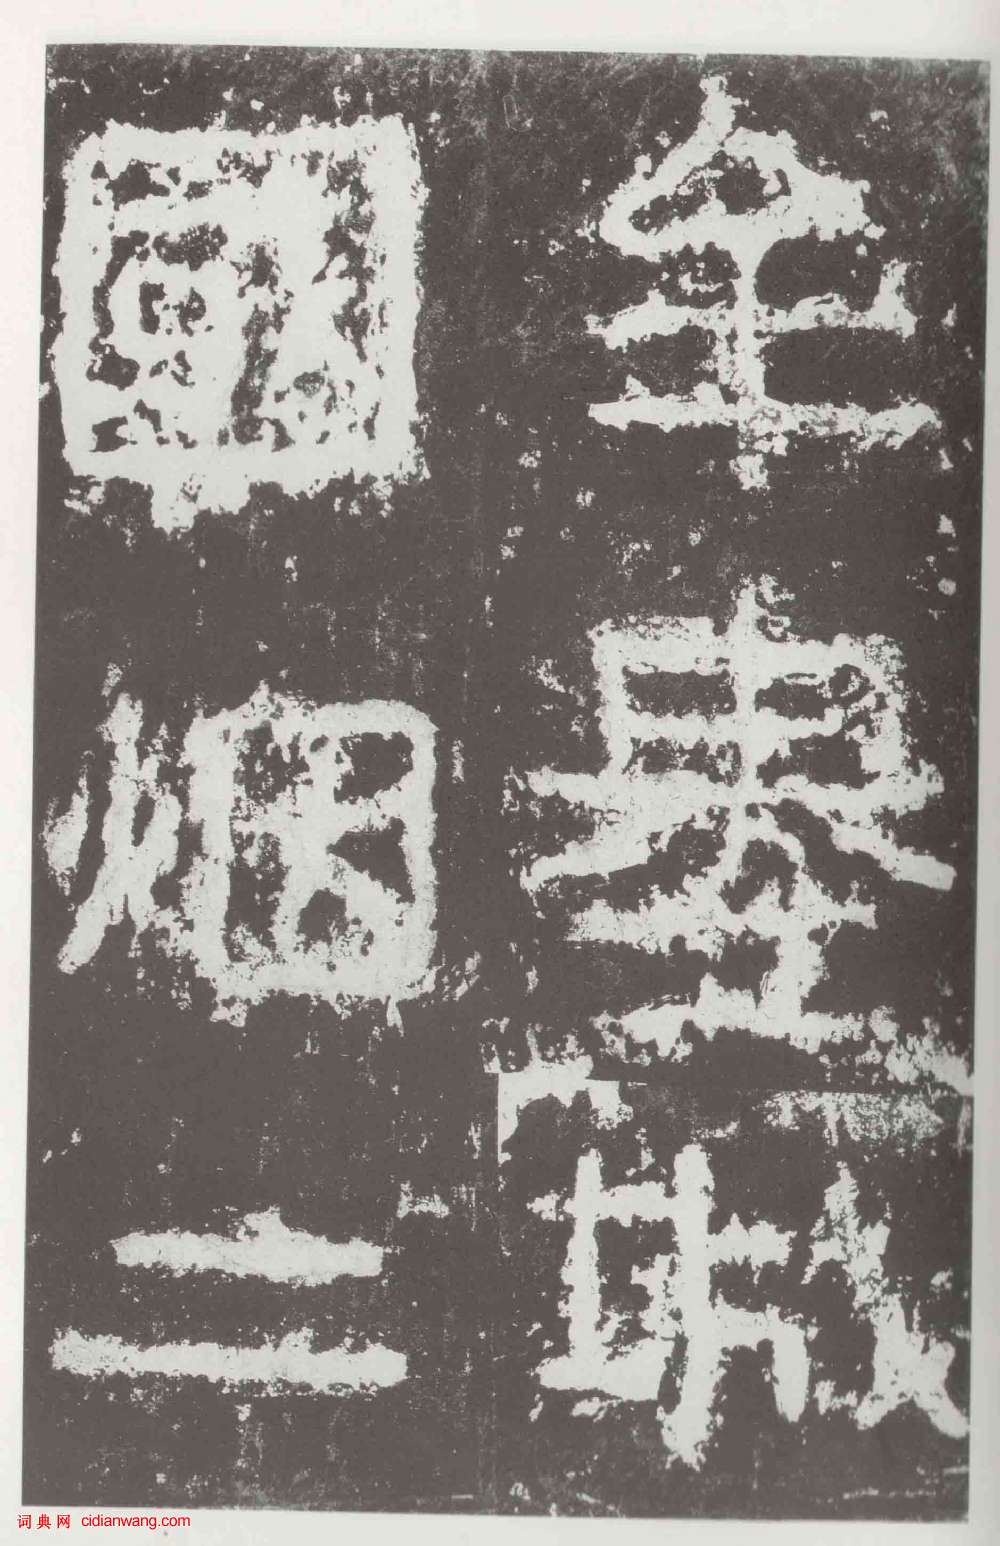 牟婁城
國烟二
词典网 cidianwang.com